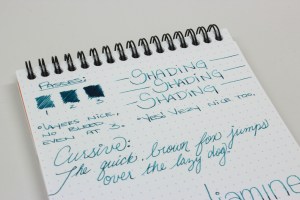 PASSES:
1 2 3
• LAYERS NICE,
NO BLEED
EVEN AT 3.
SHADING
SHADING
SHADING
• YES! VERY NICE TOO.
Cursive:
The quick brown fox jumps
over the lazy dog